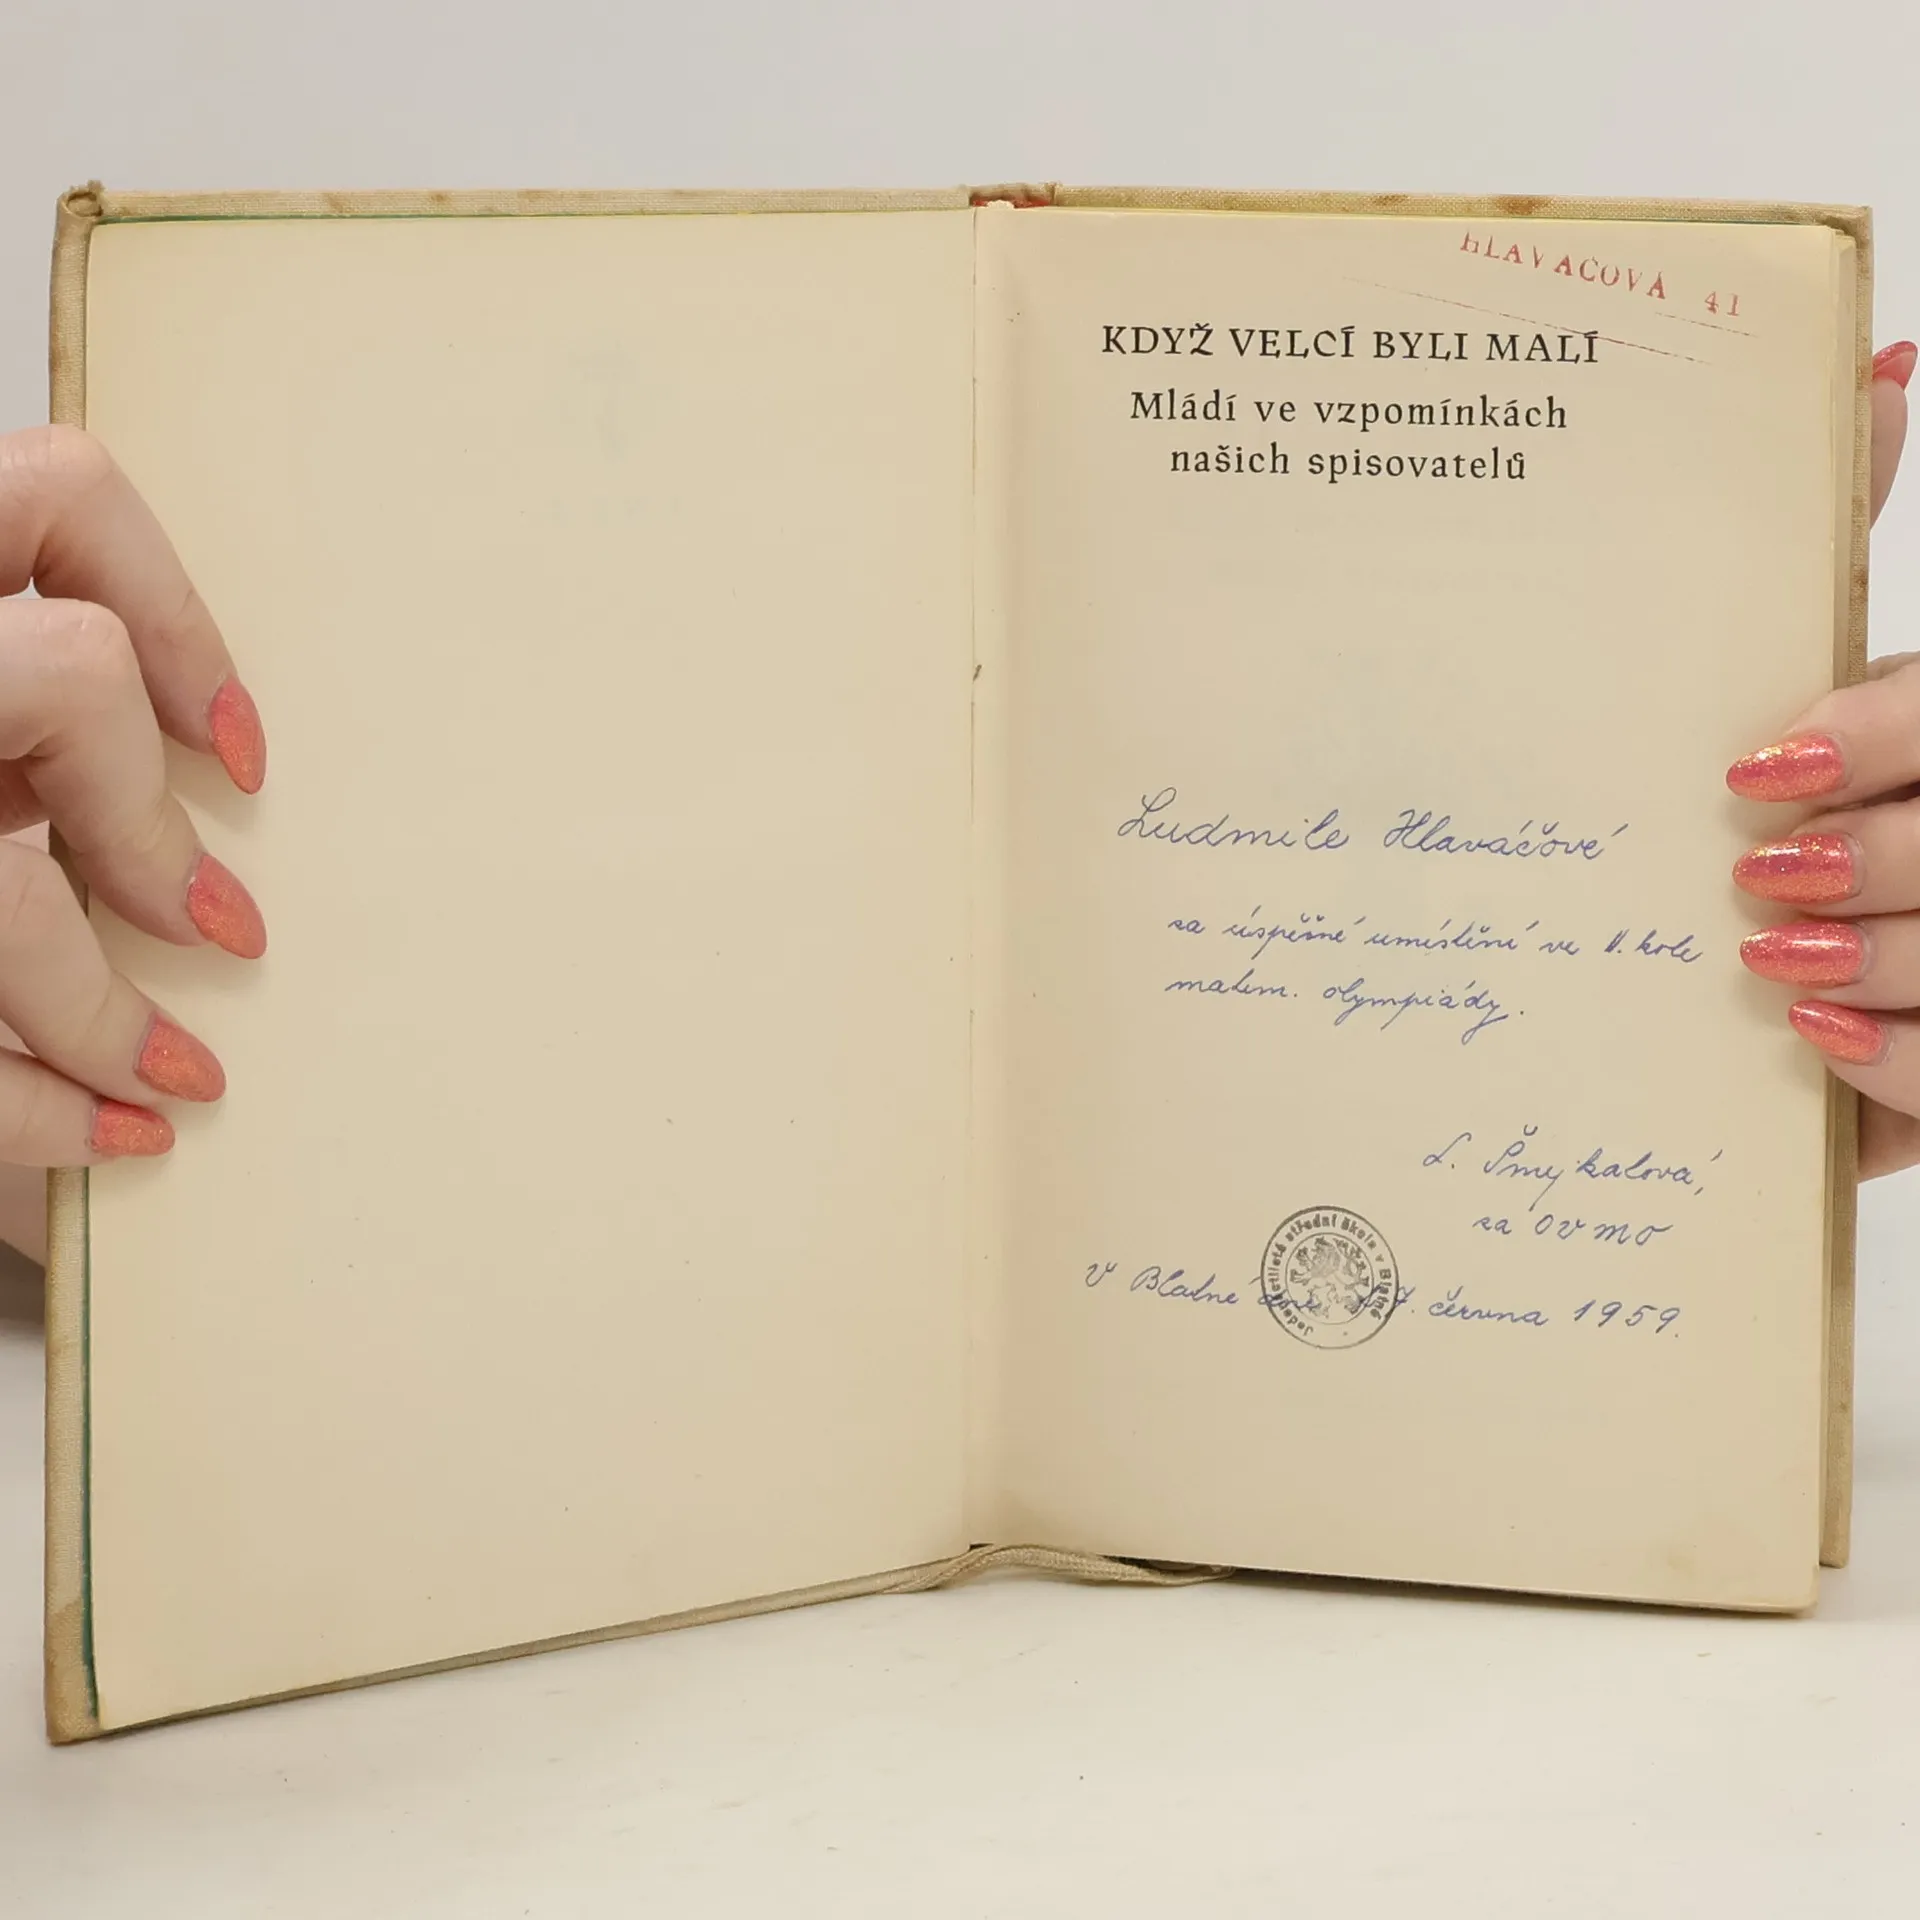 HLAVAČOVÁ 41
KDYŽ VELCÍ BYLI MALÍ
Mládí ve vzpomínkách
našich spisovatelů
Ludmile Hlaváčové
za úspěšné umístění ve II. kole
matem. olympiády.
L. Šmejkalová,
za OV MO
Jedenáctiletá střední škola v Blatné
V Blatné dne 7. června 1959.